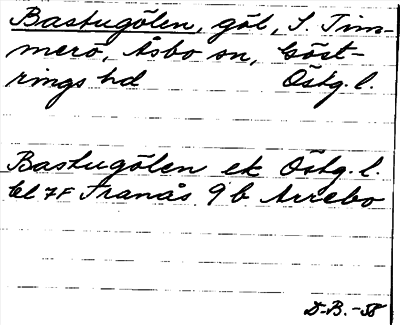 Bastugölen, göl, S Tim-
merö, Åsbo sn, Göst-
rings hd Östg. l.
Bastugölen ek Östg. l.
bl 7F Tranås 9 b Arrebo
D-B. -58